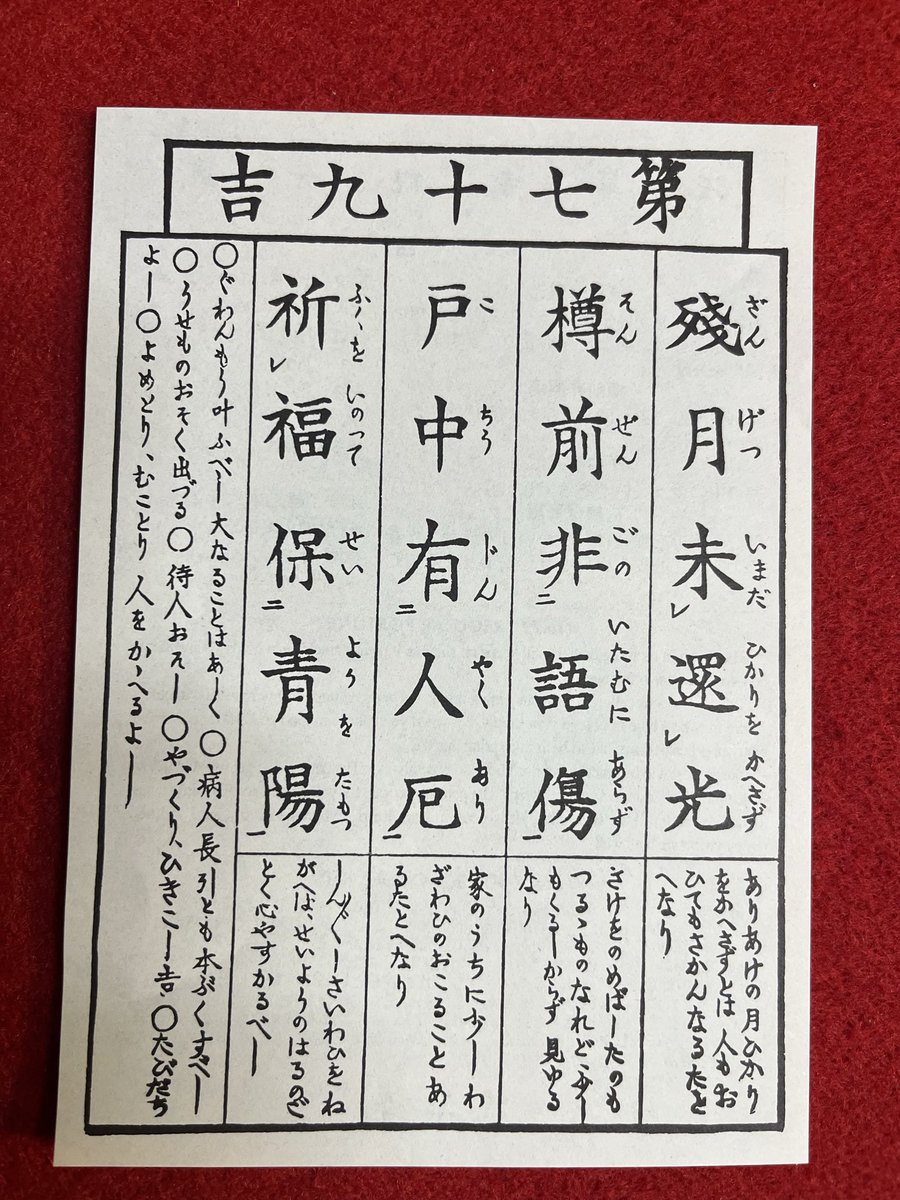 第七十九吉
殘月未還光
ざんげついまだひかりをかへさず
樽前非語傷
そんぜんごのいたむにあらず
戸中有人厄
こちうじんやくあり
祈福保青陽
ふくをいのつてせいようをたもつ
ありあけの月ひかり
をかへさずとは人もお
ひてもさかんなるたと
へなり
さけをのめばしたのも
つるゝものなれど少し
もくるしからず見ゆる
なり
家のうちに少しわ
ざわひのおこることあ
るたとへなり
しん〴〵しさいわひをね
がへば、せいようのはるのご
とく心やすかるべし
○ぐわんもう叶ふべし大なることはあしく○病人長引とも本ぶくすべし
○うせものおそく出づる○待人おそし○やづくり、ひきこし吉、○たびだち
よし○よめとり、むことり人をかゝへるよし